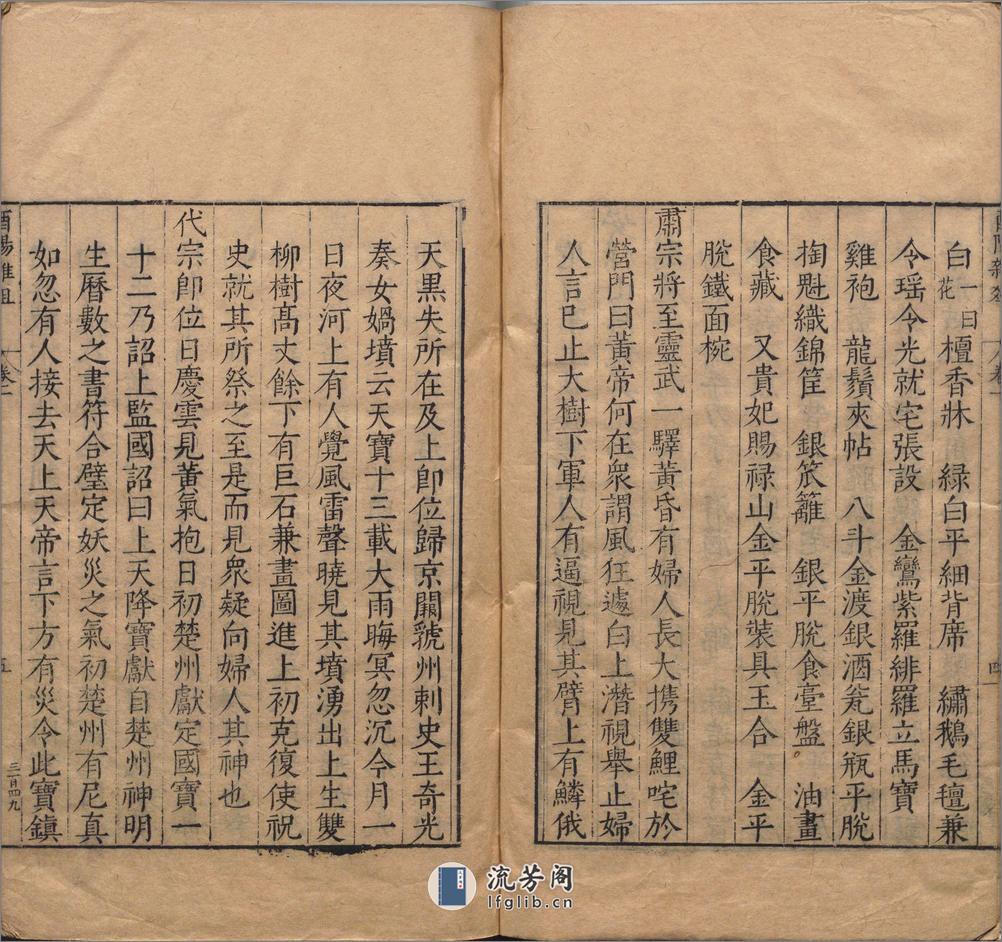 酉陽雜俎 卷一 四
白一曰花檀香牀　綠白平細背席　繡鵝毛氊兼
令瑶令光就宅張設　金鸞紫羅緋羅立馬寶
雞袍　龍鬚夾帖　八斗金渡銀酒瓮銀瓶平脫
掏魁織錦筐　銀笊籬　銀平脫食臺盤　油畫
食藏　又貴妃賜祿山金平脫裝具玉合　金平
脫鐵面椀
肅宗將至靈武一驛黃昏有婦人長大攜雙鯉咤於
營門曰黃帝何在衆謂風狂遽白上潛視舉止婦
人言已止大樹下軍人有逼視見其臂上有鱗俄
天黑失所在及上卽位歸京闕虢州刺史王奇光
奏女媧墳云天寶十三載大雨晦冥忽沉今月一
日夜河上有人覺風雷聲曉見其墳湧出上生雙
柳樹高丈餘下有巨石兼畫圖進上初克復使祝
史就其所祭之至是而見衆疑向婦人其神也
代宗卽位日慶雲見黃氣抱日初楚州獻定國寶一
十二乃詔上監國詔曰上天降寶獻自楚州神明
生曆數之書符合璧定妖災之氣初楚州有尼真
如忽有人接去天上天帝言下方有災令此寶鎮
酉陽雜俎 卷一 五
三百四九
流芳阁
lfglib.cn